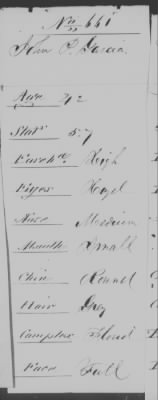 No 661
John P. Garcia
Age 42
Statr 5.7
Foreh'd High
Eyes Hazel
Nose Medium
Mouth Small
Chin Round
Hair Grey
Complex Florid
Face Full